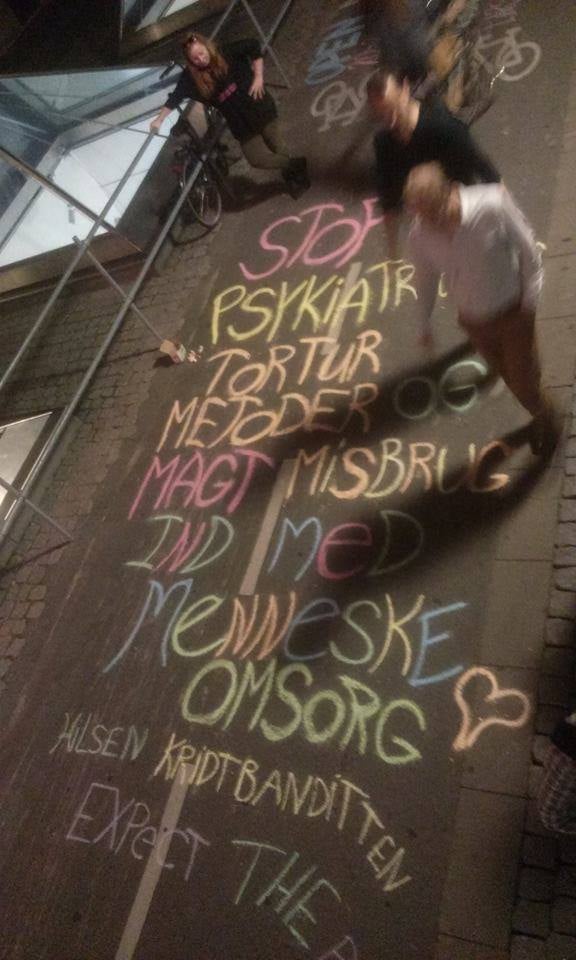 STOP
PSYKiATRi
TORTUR
METODER OG
MAGT MiSBRUG
IND MeD
MeNNeSKE
OMSORG
HiLSEN KRiDTBANDiTTEN
EXPecT THE